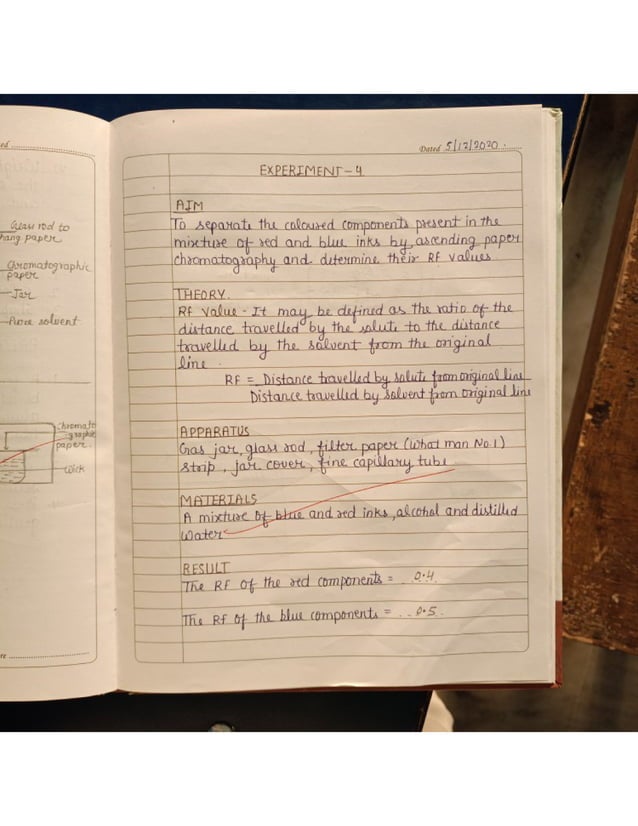 Glass rod to
hang paper
Chromatographic
paper
Jar
Pure solvent
Chromato
graphic
paper.
Wick
Dated 5/12/2020.
EXPERIMENT-4
AIM
To separate the coloured components present in the
mixture of red and blue inks by ascending paper
chromatography and determine their RF values.
THEORY.
Rf value - It may be defined as the ratio of the
distance travelled by the solute to the distance
travelled by the solvent from the original
line.
RF = Distance travelled by solute from original line
Distance travelled by solvent from original line
APPARATUS
Gas jar, glass rod, filter paper (What man No.1)
strip, jar cover, fine capillary tube
MATERIALS
A mixture of blue and red inks, alcohol and distilled
water
RESULT
The RF of the red components = 0.4.
The RF of the blue components = 0.5.